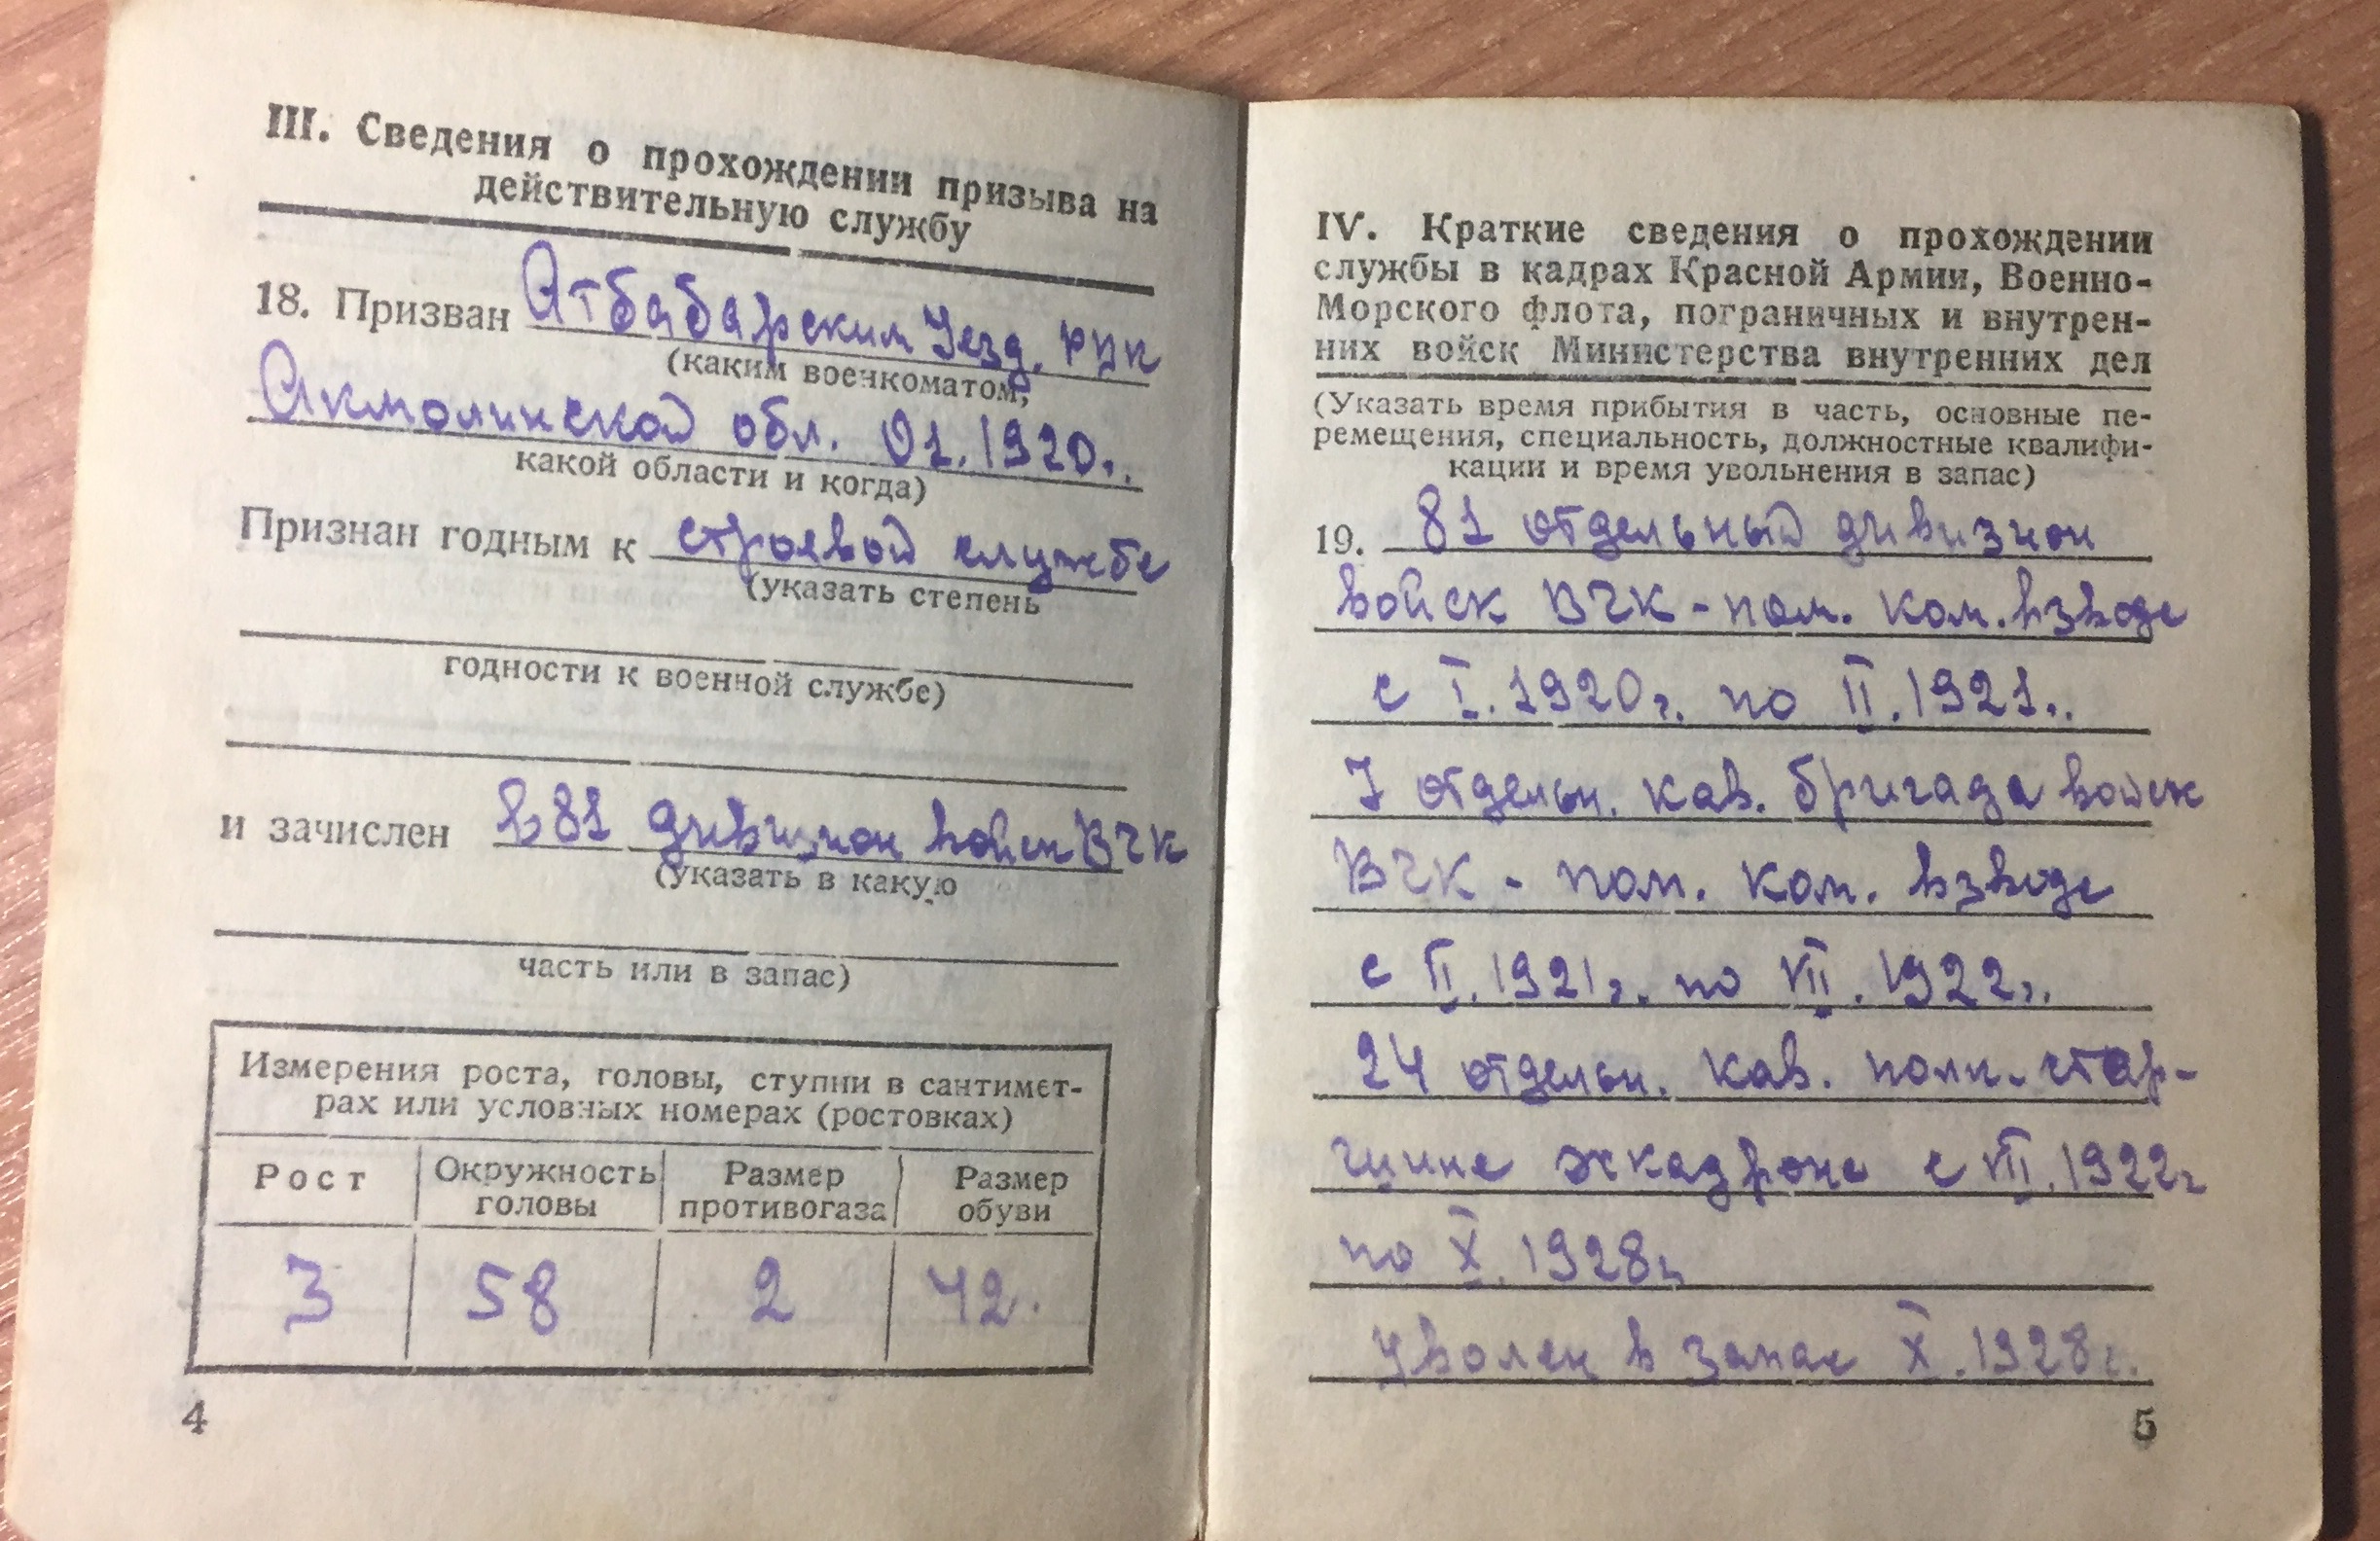 III. Сведения о прохождении призыва на
действительную службу
18. Призван Атбабарским Уезд. РВК
(каким военкоматом,
Акмолинской обл. 01.1920г.
какой области и когда)
Признан годным к строевой службе
(указать степень
годности к военной службе)
и зачислен в 81 дивизион войск ВЧК
(указать в какую
часть или в запас)
Измерения роста, головы, ступни в сантимет-
рах или условных номерах (ростовках)
Рост Окружность головы Размер противогаза Размер обуви
3 58 2 42.
4
IV. Краткие сведения о прохождении
службы в кадрах Красной Армии, Военно-
Морского флота, пограничных и внутрен-
них войск Министерства внутренних дел
(Указать время прибытия в часть, основные пе-
ремещения, специальность, должностные квалифи-
кации и время увольнения в запас)
19. 81 отдельный дивизион
войск ВЧК - пом. ком. взвода
с I.1920г. по II.1921г.
7 отдельн. кав. бригада войск
ВЧК - пом. ком. взвода
с II.1921г. по VII.1922г.
24 отдельн. кав. полк - стар-
шина эскадрона с VII.1922г
по X.1928г
Уволен в запас X.1928г.
5